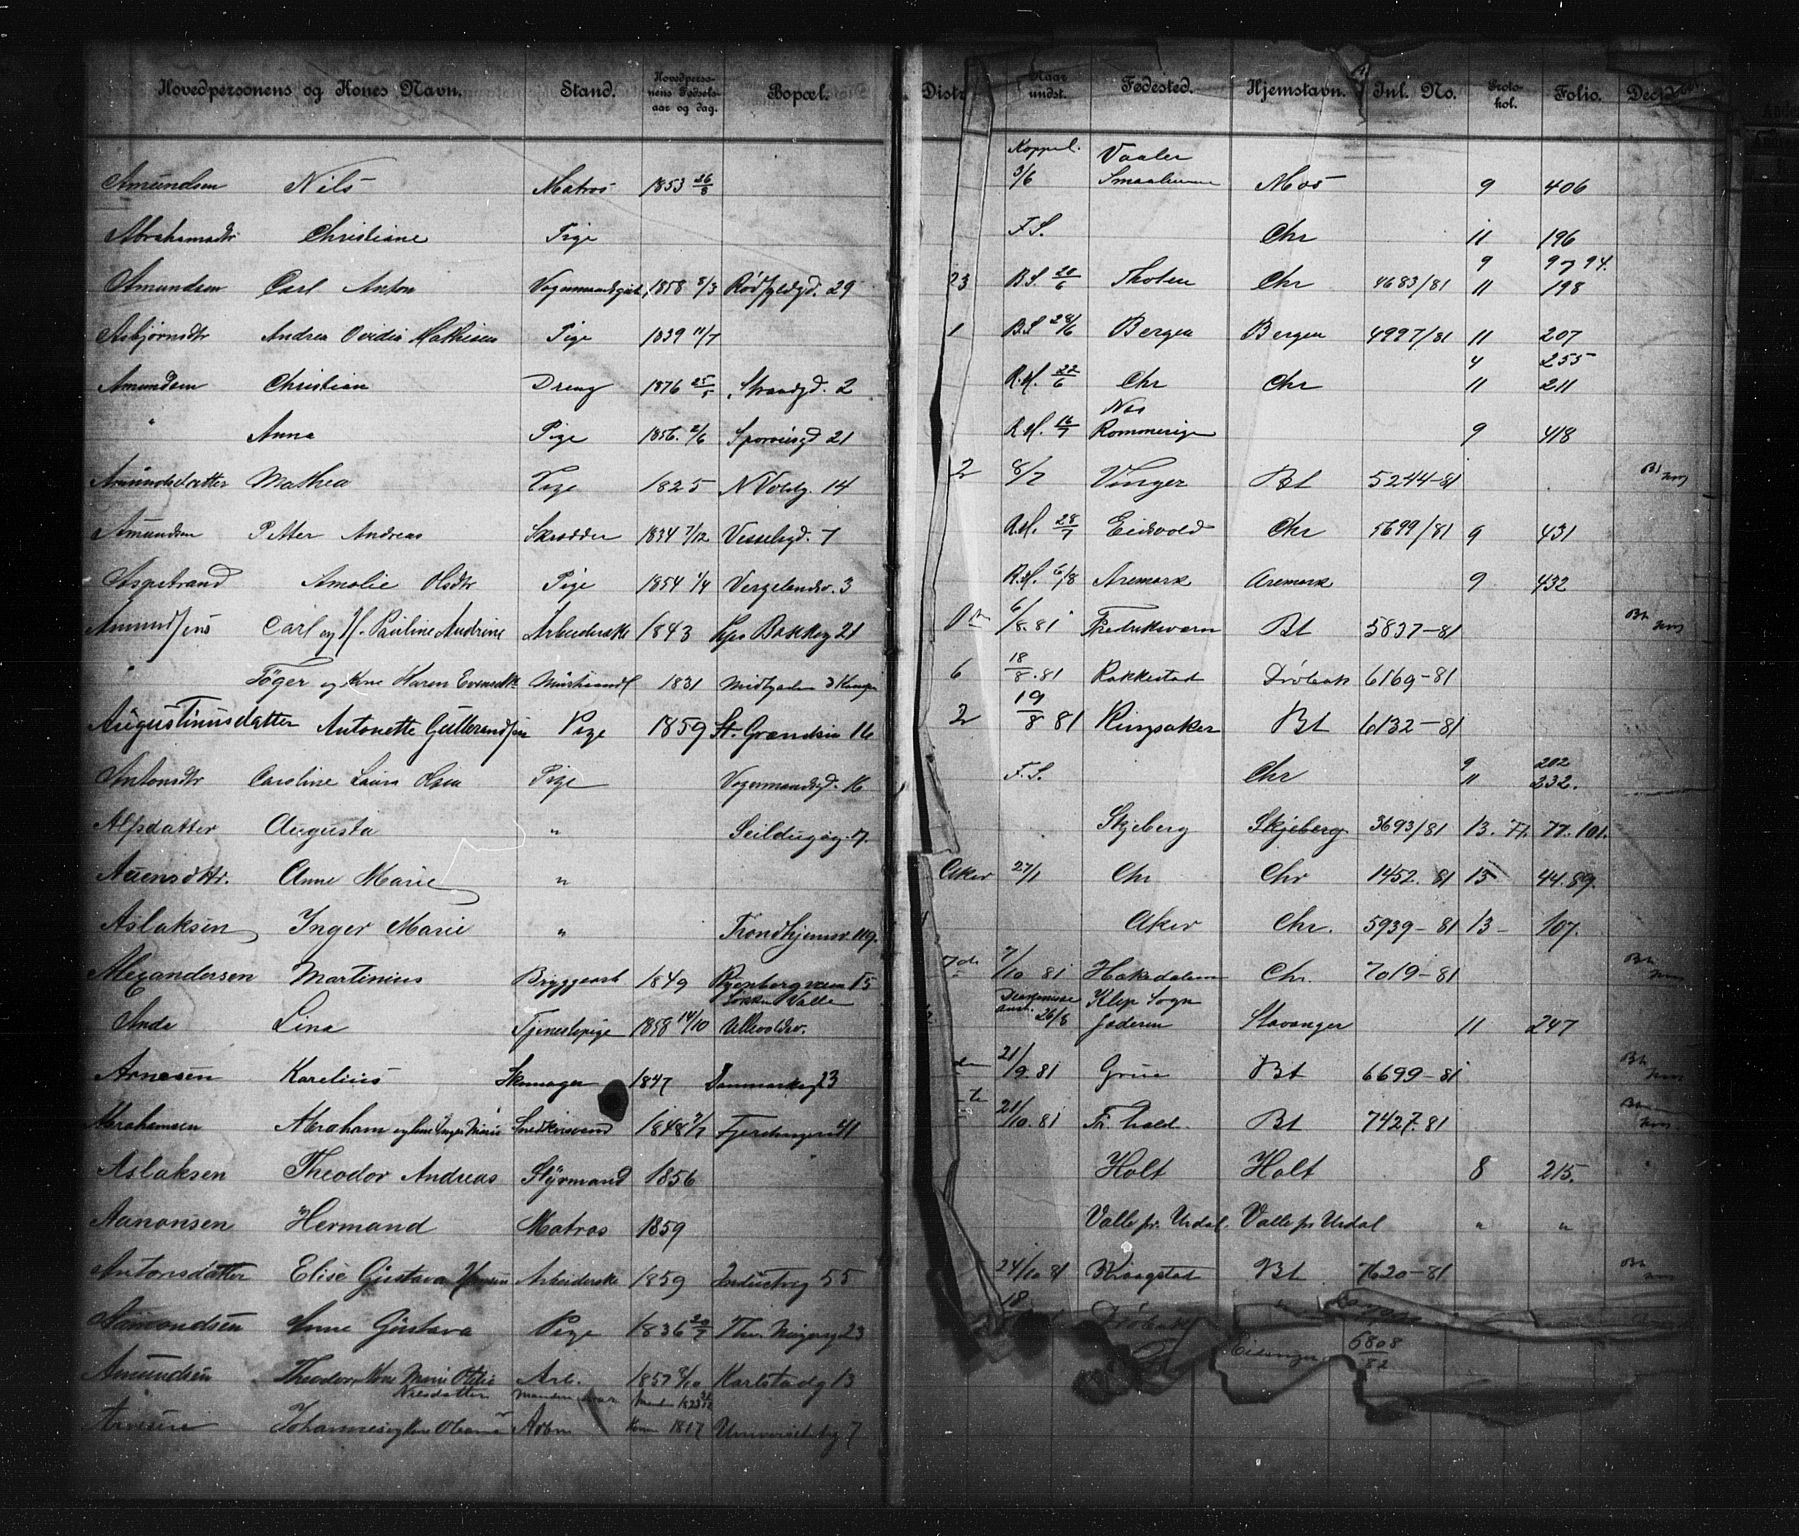 Hovedpersonens og Kones Navn. Stand. Hovedpersonens Fødselsaar og dag. Bopæl. Distr. Naar undst. Fødested. Hjemstavn. Jnl. No. Protokol. Folio.
Amundsen Nils Matros 1853 26/8 Koppel. 3/6 Vaaler Smaalenene Mos 9 406
Abrahamsdtr Christiane Pige F.S. Chr 11 196
Amundsen Carl Anton 1858 Rødfyldgd. 29 23 B.S. 20/6 Thoten Chr 4683/81 9 11 97 94. 198
Asbjørnsdtr Andrea Ovidia Mathisen Pige 1839 11/7 1 B.S. 28/6 Bergen Bergen 4997/81 11 207
Amundsen Christian Dreng 1876 Strandgd. 2 R.H. 22/6 Chr Chr 4 11 255 211
" Anna Pige 1856. 2/6 Sporveisgd 21 R.H. 16/7 Nes Rommerige 9 418
Amundsdatter Mathea Pige 1825 N Voldg. 14 2 8/7 Vinger Bt 5244-81
Amundsen Petter Andreas Skrædder 1834 7/12 Vesselsgd. 7 R.H. 28/7 Eidsvold Chr 5699/81 9 431
Aspestrand Amalie Olsdtr Pige 1854 1/4 Vergelandsv. 3 R.H. 6/8 Aremark Aremark 9 432
Amundsens Carl og H. Pauline Andrine Arbeiderske 1843 Bakkeg 21 6/8.81 Fredriksværn Bt 5837-81
" Tøger og Kone Karen Evensdtr 1831 6 18/8.81 Rakkestad Drøbak 6169-81
Augustinusdatter Antonette Gulbrandsen Pige 1859 St. Grændsen 16 2 19/8 81 Ringsaker Bt 6132-81
Antonsdtr Caroline Laura Olsen Pige Vognmandsgd. 16 F.S. Chr 9 11 202 232.
Alfsdatter Augusta " Seildugsg. 17. Skjeberg Skjeberg 3693/81 13. 77. 101.
Auensdtr. Anne Marie " Aker 27/1 Chr Chr 1452. 81 13 44.89.
Aslaksen Inger Marie " Trondhjemsv. 119. Aker Chr. 5939-81 13 107.
Alexandersen Martinius Bryggearb 1849 Ryenbergveien 15 7/10 81 Hakedalen Chr. 7019-81
Anda Lina Tjenestepige 1858 14/10 Løkken Valle Ullevoldsv. 26/8 Klep Sogn Jæderen Stavanger 11 247
Arnesen Karelius Skomager 1847 Danmarksg 23 21/9.81 Grue Bt 6699-81
Abrahamsen Abraham og Kone Inger Marie Snedkersvend 1848 Fjerdingen 41 21/10.81 Fr. hald. Bt 7427.81
Aslaksen Theodor Andreas Styrmand 1856 Holt Holt 8 215.
Aanonsen Hermand Matros 1859 Valle pr. Urdal. Valle pr Urdal " "
Antonsdatter Elise Gustava Hansen Arbeiderske 1859 Industrig 55 24/10 81 Kraagstad Bt 7620-81
Anne Gustava Pige 1836 20/7 Thv. Meyersg 23 18 Drøbak
Amundsen Theodor, Kone Marie Otilie Nilsdatter Arb. 1857 Karlstadg 13 Eidanger 6808/82
Johannes og Kone Oleana Arbm Kone 1817 Universitetsg 7